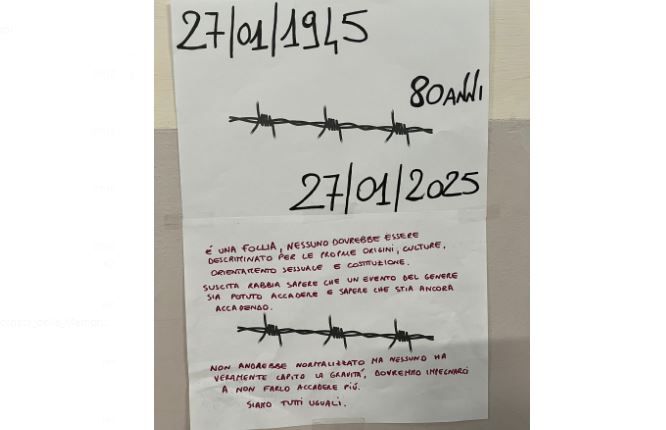 27/01/1945
80 ANNI
27/01/2025
É UNA FOLLIA, NESSUNO DOVREBBE ESSERE
DISCRIMINATO PER LE PROPRIE ORIGINI, CULTURE,
ORIENTAMENTO SESSUALE E COSTITUZIONE.
SUSCITA RABBIA SAPERE CHE UN EVENTO DEL GENERE
SIA POTUTO ACCADERE E SAPERE CHE STIA ANCORA
ACCADENDO.
NON ANDREBBE NORMALIZZATO MA NESSUNO HA
VERAMENTE CAPITO LA GRAVITÁ, DOVREMMO IMPEGNARCI
A NON FARLO ACCADERE PIÚ.
SIAMO TUTTI UGUALI.